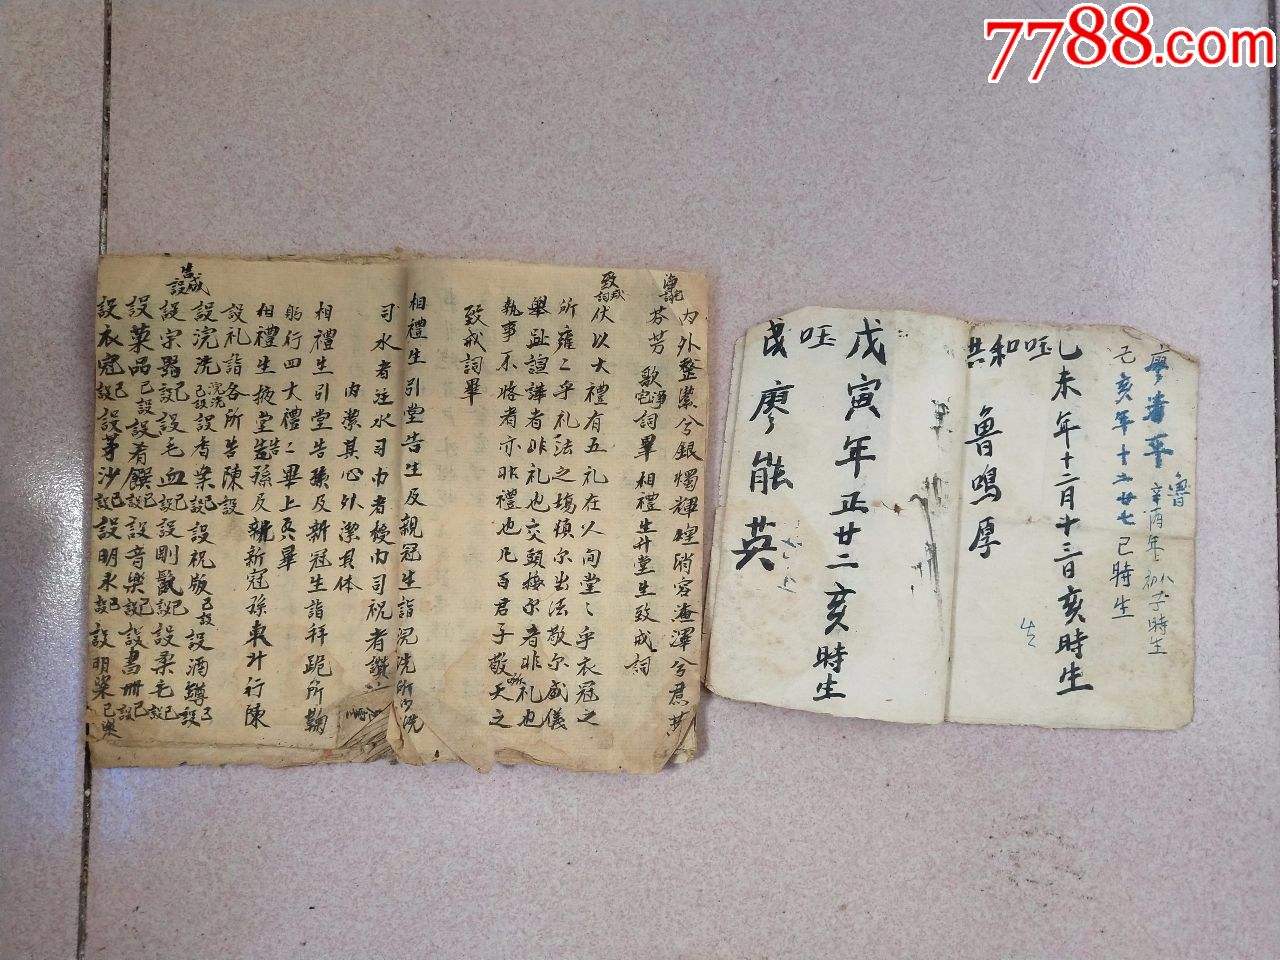 7788.com
内外整肅兮銀燭輝煌
芬芳 歌
詞畢 相禮生升堂生致戒詞
致戒詞
伏以大禮有五礼在人間堂〻乎衣冠之
所雍〻乎礼法之場慎尔出活敬尔威儀
舉趾諠譁者非礼也交頭接尔者非礼也
執事不恪者亦非禮也凡百君子敬天之
致戒詞畢
相禮生引堂告生及親冠生詣浣洗所
司水者注水司巾者授巾司祝者讚
内潔其心外潔其体
相禮生引堂告孫及新冠生詣拜跪所鞠
躬行四大禮〻畢上香畢
相禮生掖堂告孫及新冠孫東升行陳
設礼詣各所告陳設
告成設
設浣洗已設設香案已設設祝版已設設酒罇已設
設宗器已設設毛血已設設剛鬣已設設柔毛已設
設菓品已設設肴饌已設設音樂已設設書冊已設
設衣冠已設設茅沙已設設明水已設設明粢已
魯
辛酉年 子時生
己亥年十二廿七巳時生
乙未年十二月十三日亥時生
共和
魯鳴厚
生
戊寅年正廿二亥時生
民
廖能英